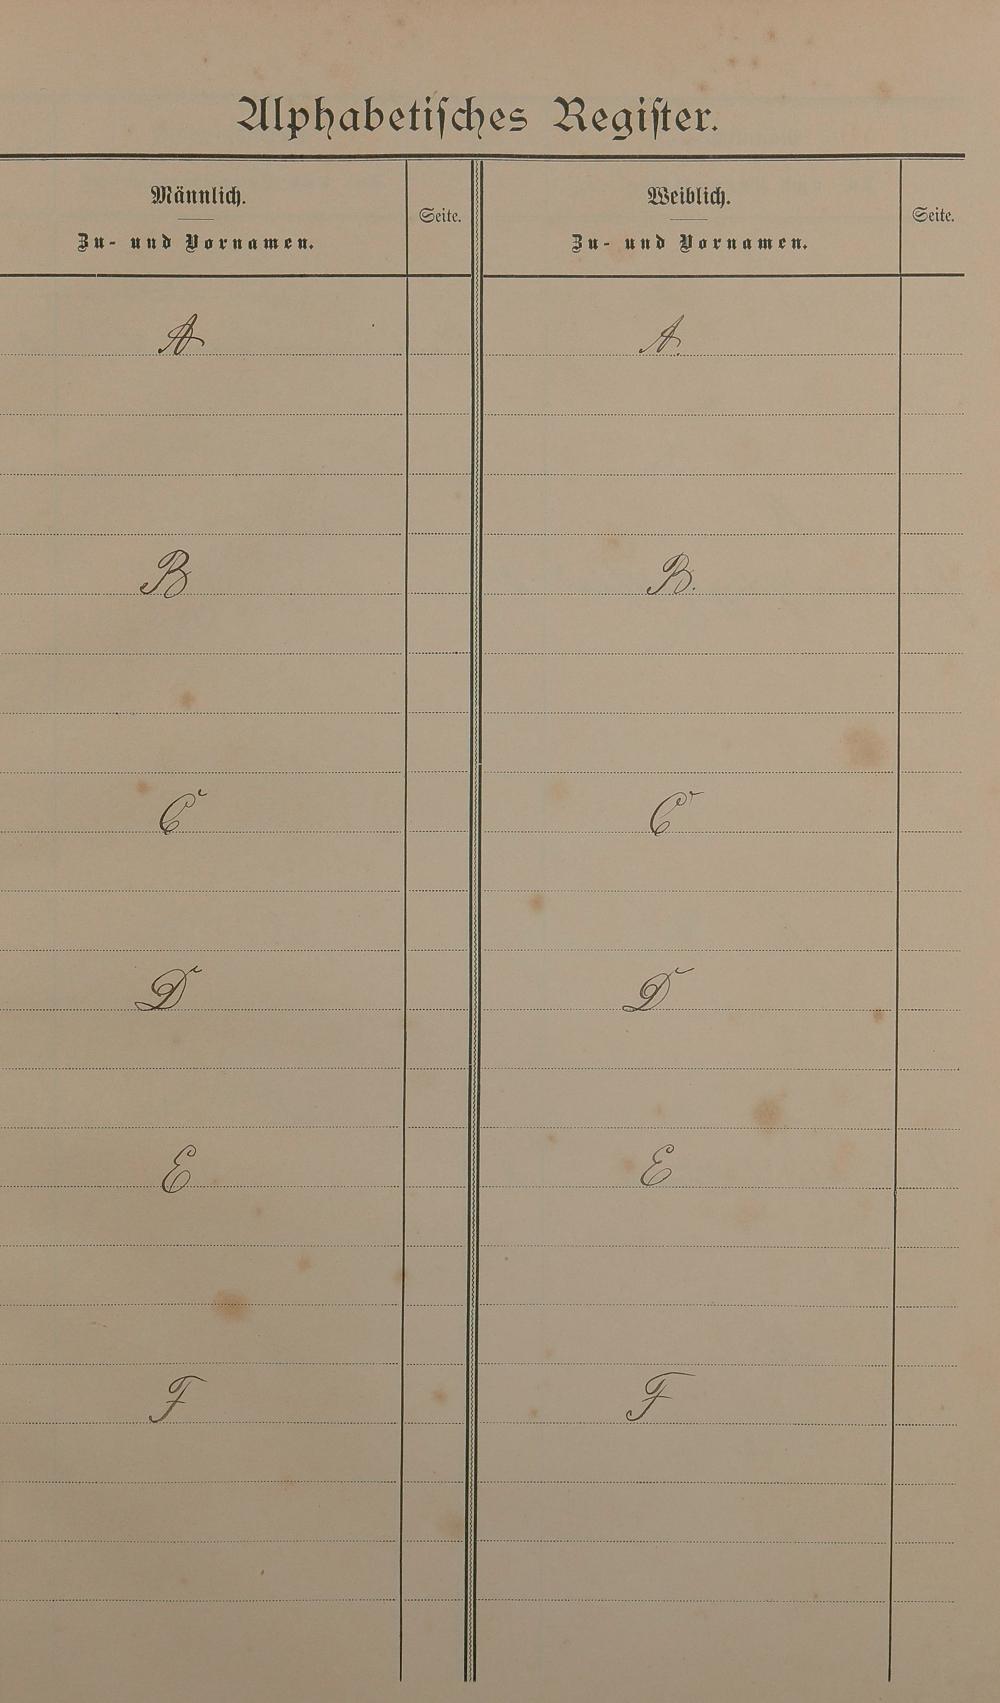 Alphabetisches Register.
Männlich.
Zu- und Vornamen.
Seite.
Weiblich.
Zu- und Vornamen.
Seite.
A
A.
B
B.
C
C
D
D
E
E
F
F